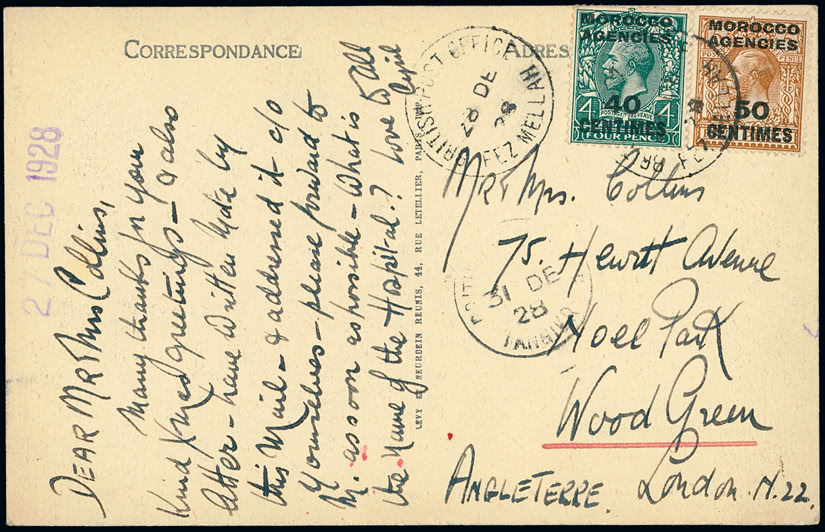 CORRESPONDANCE
ADRES
27 DEC 1928
DEAR MR & MRS Collins,
Many thanks for your
Kind Xmas greetings – & also
letter – have written note by
this Mail – & addressed it c/o
Yourselves – please forward to
M. as soon as possible – What is
the name of the Hospital? Love to all
Cyril
LEVY ET NEURDEIN REUNIS, 44, RUE LETELLIER, PARIS
BRITISH POST OFFICE
28 DE
28
FEZ MELLAH
MOROCCO
AGENCIES
40
CENTIMES
FOUR PENCE
4
4
MOROCCO
AGENCIES
50
CENTIMES
FEZ MELLAH
Mr & Mrs. Collins
75, Hewitt Avenue
Noel Park
Wood Green
ANGLETERRE. London. N.22.
31 DE
28
TANGIER